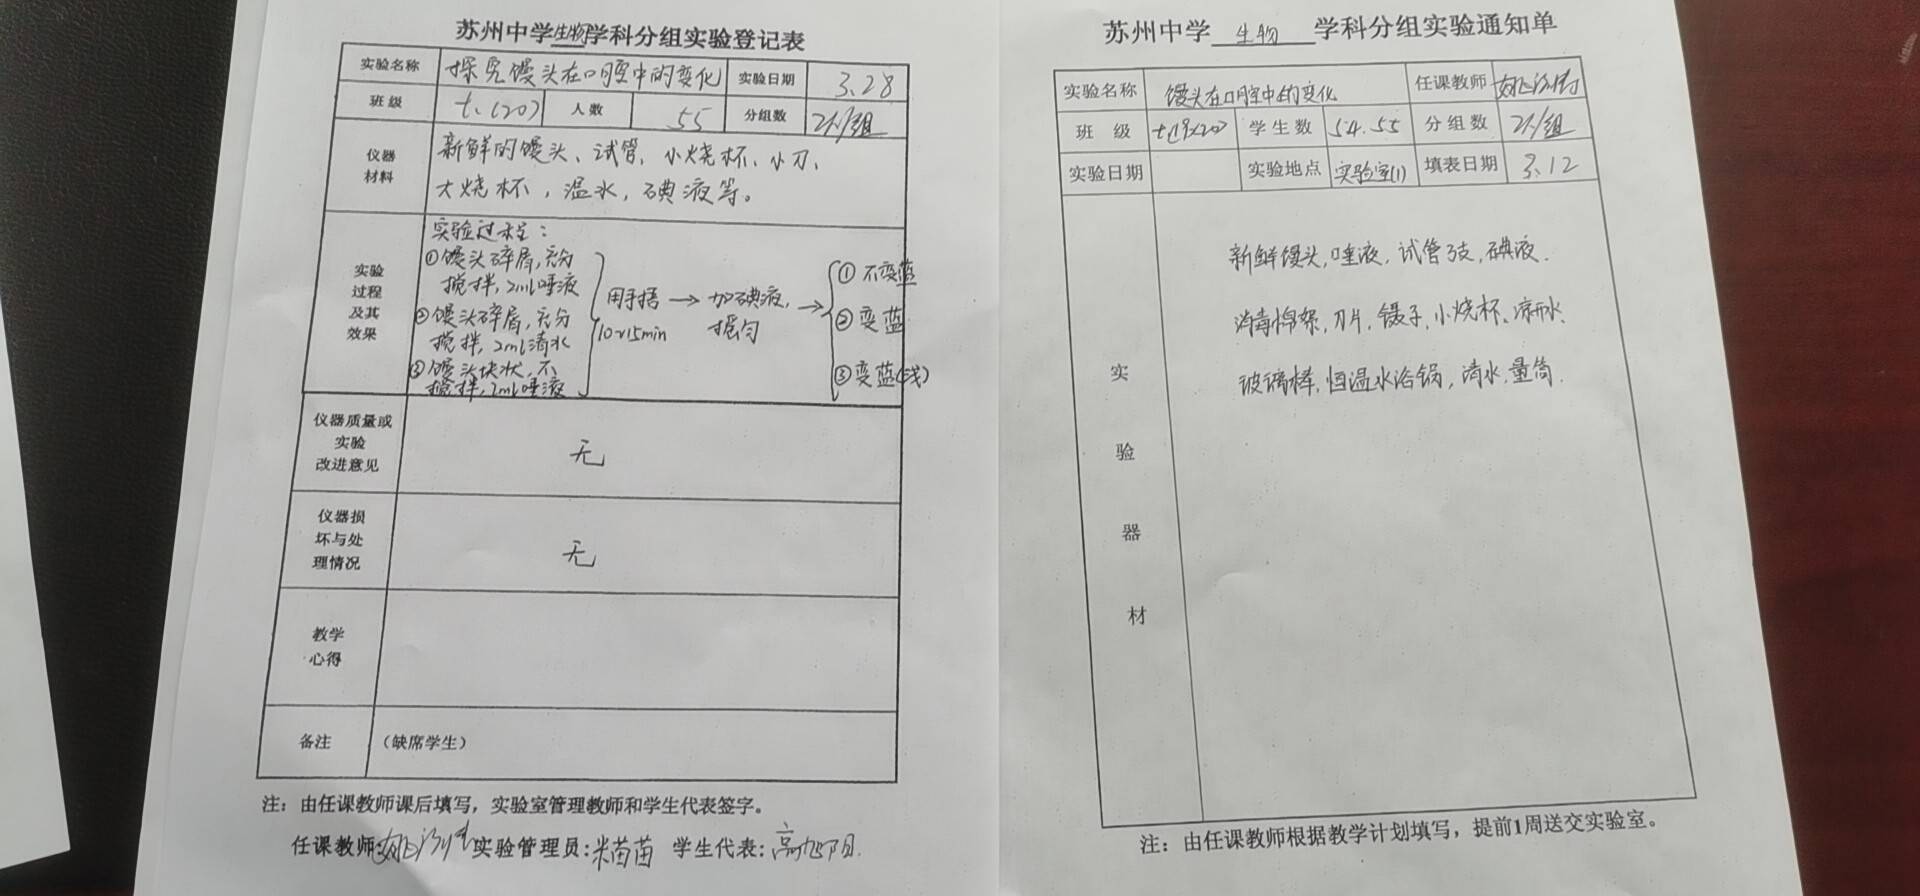 苏州中学生物学科分组实验登记表
实验名称 探究馒头在口腔中的变化 实验日期 3.28
班级 七.(20) 人数 55 分组数 2人/组
仪器材料 新鲜的馒头、试管、小烧杯、小刀、
大烧杯，温水，碘液等。
实验过程及其效果 实验过程：
①馒头碎屑,充分
搅拌,2ml唾液
②馒头碎屑,充分
搅拌,2ml清水
③馒头块状,不
搅拌,2ml唾液
用手捂 → 加碘液, →
10~15min 振匀
①不变蓝
②变蓝
③变蓝(浅)
仪器质量或实验改进意见 无
仪器损坏与处理情况 无
教学心得
备注 (缺席学生)
注：由任课教师课后填写，实验室管理教师和学生代表签字。
任课教师: 实验管理员:米苗苗 学生代表:高旭阳.
苏州中学 生物 学科分组实验通知单
实验名称 馒头在口腔中的变化 任课教师
班级 七(19)(20) 学生数 54.55 分组数 2人/组
实验日期 实验地点 实验室(1) 填表日期 3.12
实验器材
新鲜馒头,唾液,试管3支,碘液.
消毒棉絮,刀片,镊子,小烧杯、凉开水、
玻璃棒,恒温水浴锅,清水,量筒.
注：由任课教师根据教学计划填写，提前1周送交实验室。